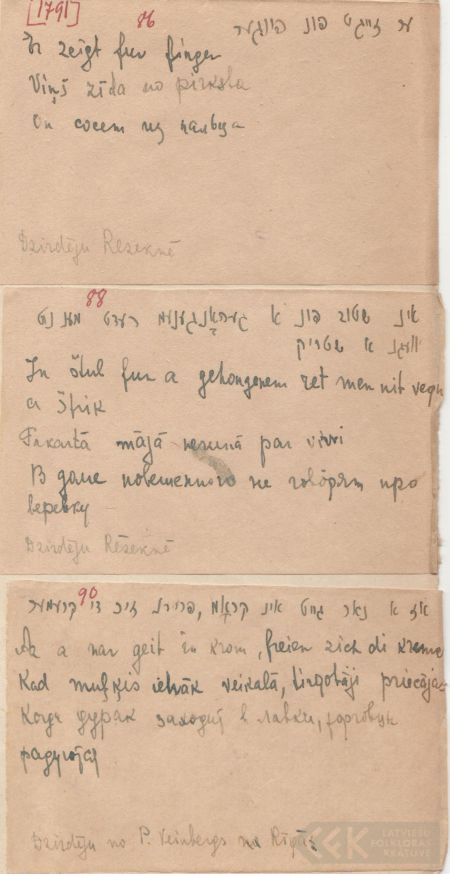 [1791]
86
ער זייגט פון פינגער
Er zeigt fun finger
Viņš zīda no pirksta
Он сосет из пальца
Dzirdēju Rēzeknē
88
אין שטוב פון א געהאָנגענעם רעדט מען ניט
וועגן א שטריק
In štub fun a gehongenem ret men nit vegn
a štrik
Pakārtā mājā nerunā par virvi
В доме повешенного не говорят про
веревку
Dzirdēju Rēzeknē
90
אז א נאר גייט אין קראָם, פרייען זיך די קרעמער
Az a nar geit in krom, freien zich di kremer
Kad muļķis ienāk veikalā, tirgotāji priecājas
Когда дурак заходит в лавку, торговцы
радуются
Dzirdēju no P. Veinbergs no Rīgas
LATVIEŠU
FOLKLORAS
KRĀTUVE